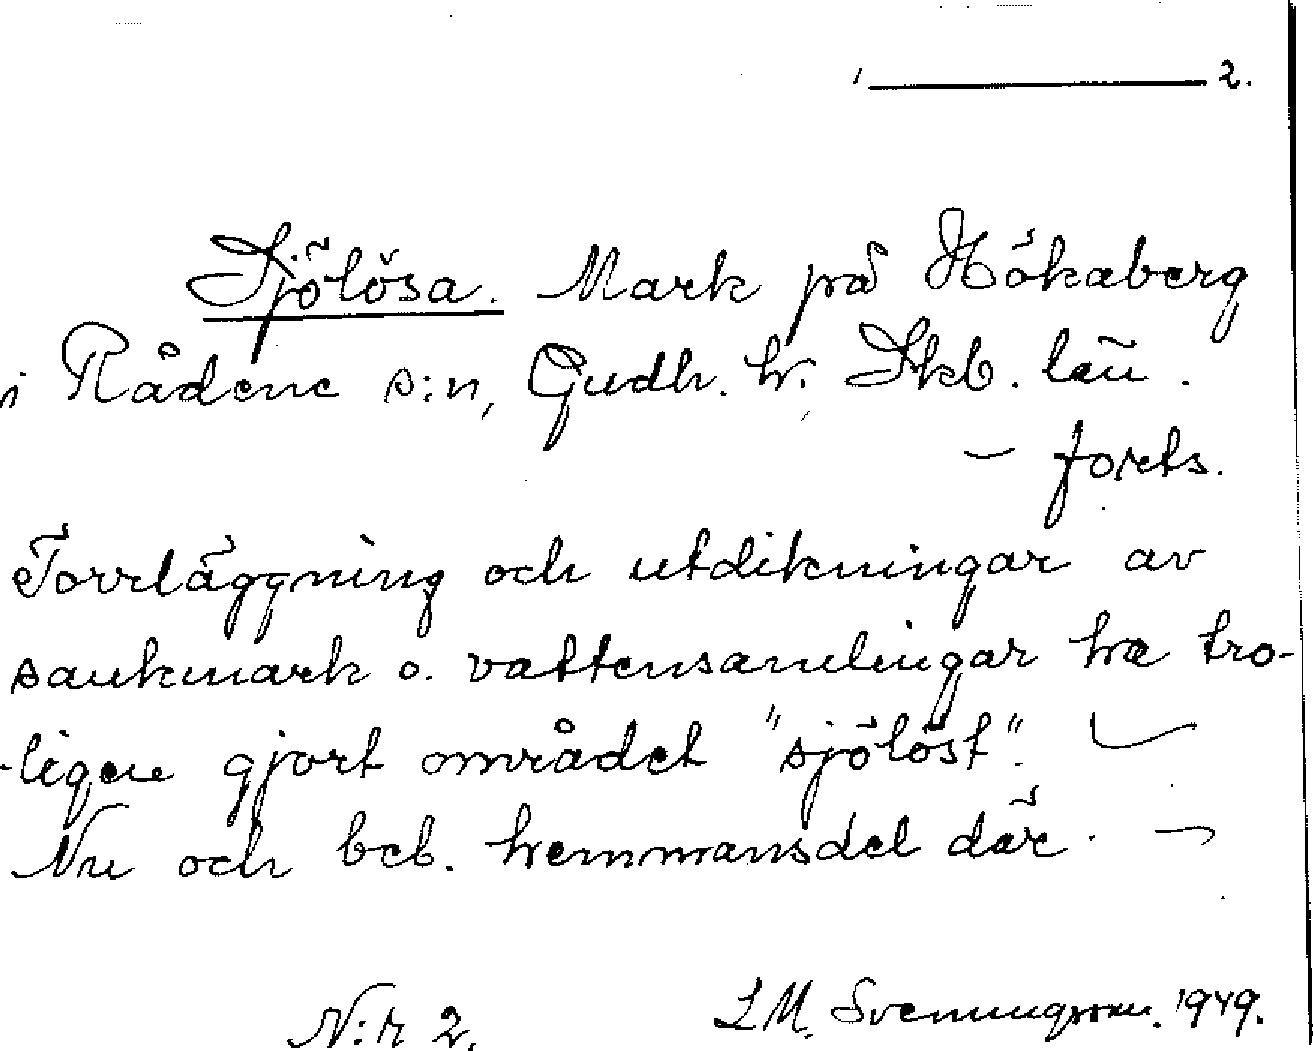 2.
Sjölösa. Mark på Hökaberg
i Rådene s:n, Gudh. hr. Skb. län.
- forts.
Torrläggning och utdikningar av
sankmark o. vattensamlingar ha tro-
-ligen gjort området "sjölöst".
Nu och beb. hemmansdel där.
N:r 2.
L M. Svenungsson. 1949.